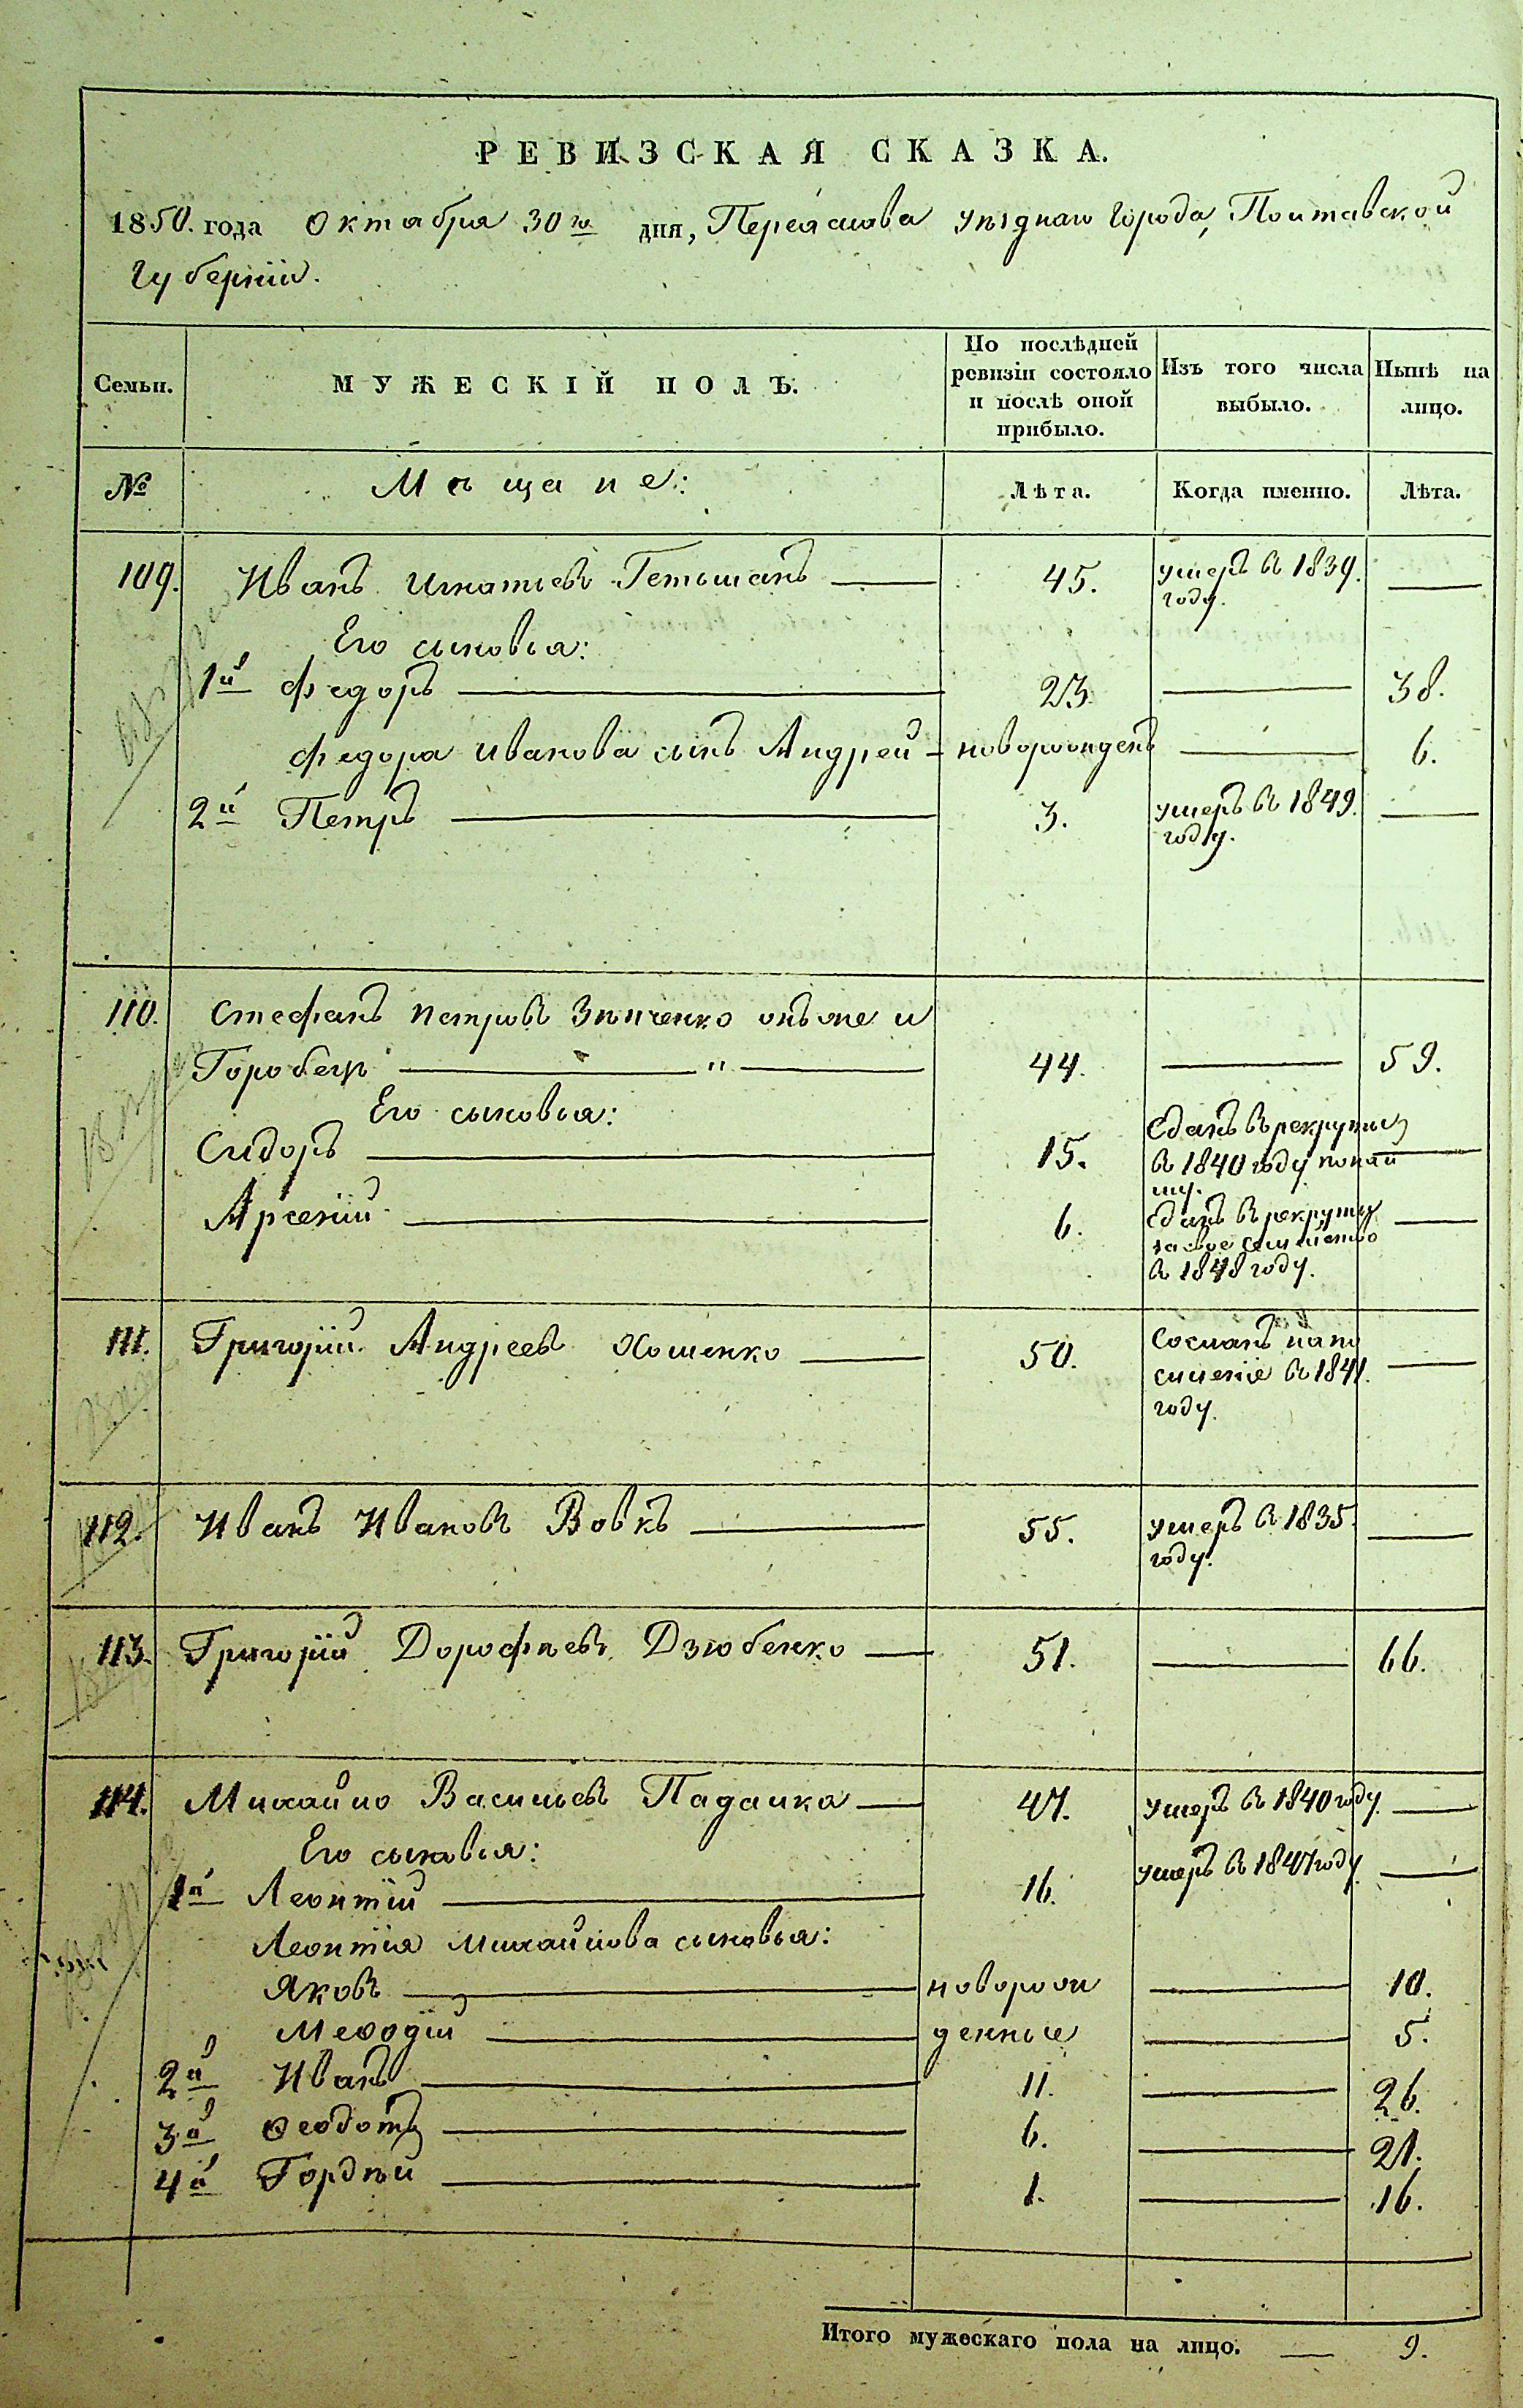 РЕВИЗСКАЯ СКАЗКА.
1850. года Октября 30го дня, Переяслава уѣзднаго города, Полтавской
Губерніи.
Семьи. МУЖЕСКІЙ ПОЛЪ. По послѣдней ревизіи состояло и послѣ оной прибыло. Изъ того числа выбыло. Нынѣ на лицо.
№ Мѣщане: Лѣта. Когда именно. Лѣта.
109. Иванъ Игнатьевъ Гетьманъ — 45. умеръ въ 1839. году. —
Его сыновья:
1й Федоръ — 23. — 38.
Федора Иванова сынъ Андрей — новорожденъ — 6.
2й Петръ — 3. умеръ въ 1849. году. —
110. Стефанъ Петровъ Зѣнченко онъ же и
Горобецъ — " — 44. — 59.
Его сыновья:
Сидоръ — 15. Сданъ въ рекруты въ 1840 году по найму. —
Арсеній — 6. Сданъ въ рекруты за свое семейство въ 1848 году. —
111. Григорій Андреевъ Хоменко — 50. Сосланъ на поселеніе въ 1841. году. —
112. Иванъ Ивановъ Вовкъ — 55. умеръ въ 1835. году. —
113. Григорій Дорофѣевъ Дзюбенко — 51. — 66.
114. Михайло Васильевъ Падалка — 47. умеръ въ 1840 году. —
Его сыновья:
1й Леонтій — 16. умеръ въ 1847 году. —
Леонтія Михайлова сыновья:
Яковъ — новорож — 10.
Меѳодій — денные — 5.
2й Иванъ — 11. — 26.
3й Ѳеодотъ — 6. — 21.
4й Гордѣй — 1. — 16.
Итого мужескаго пола на лицо. — 9.